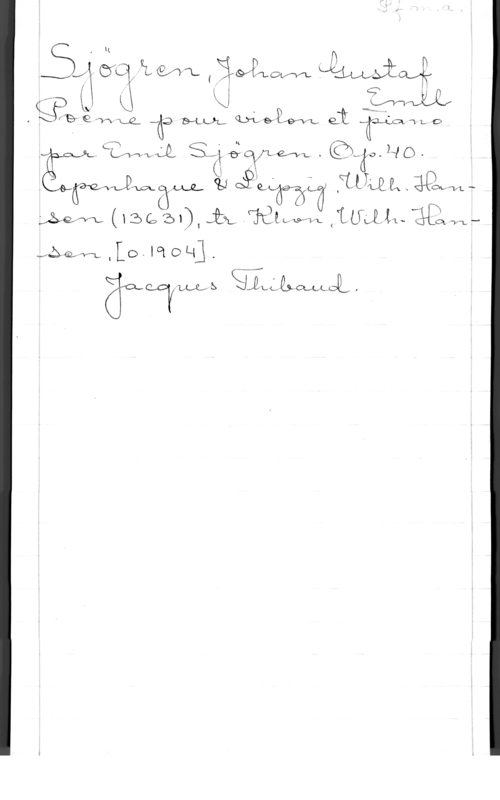 Pf m.a.
Sjögren, Johan Gustaf
Emil
Poème pour violon et piano
par Emil Sjögren. Op. 40.
Copenhague & Leipzig, Wilh. Han-
sen (13631), tr Khvn, Wilh. Han-
sen, [o. 1904].
Jacques Thibaud.